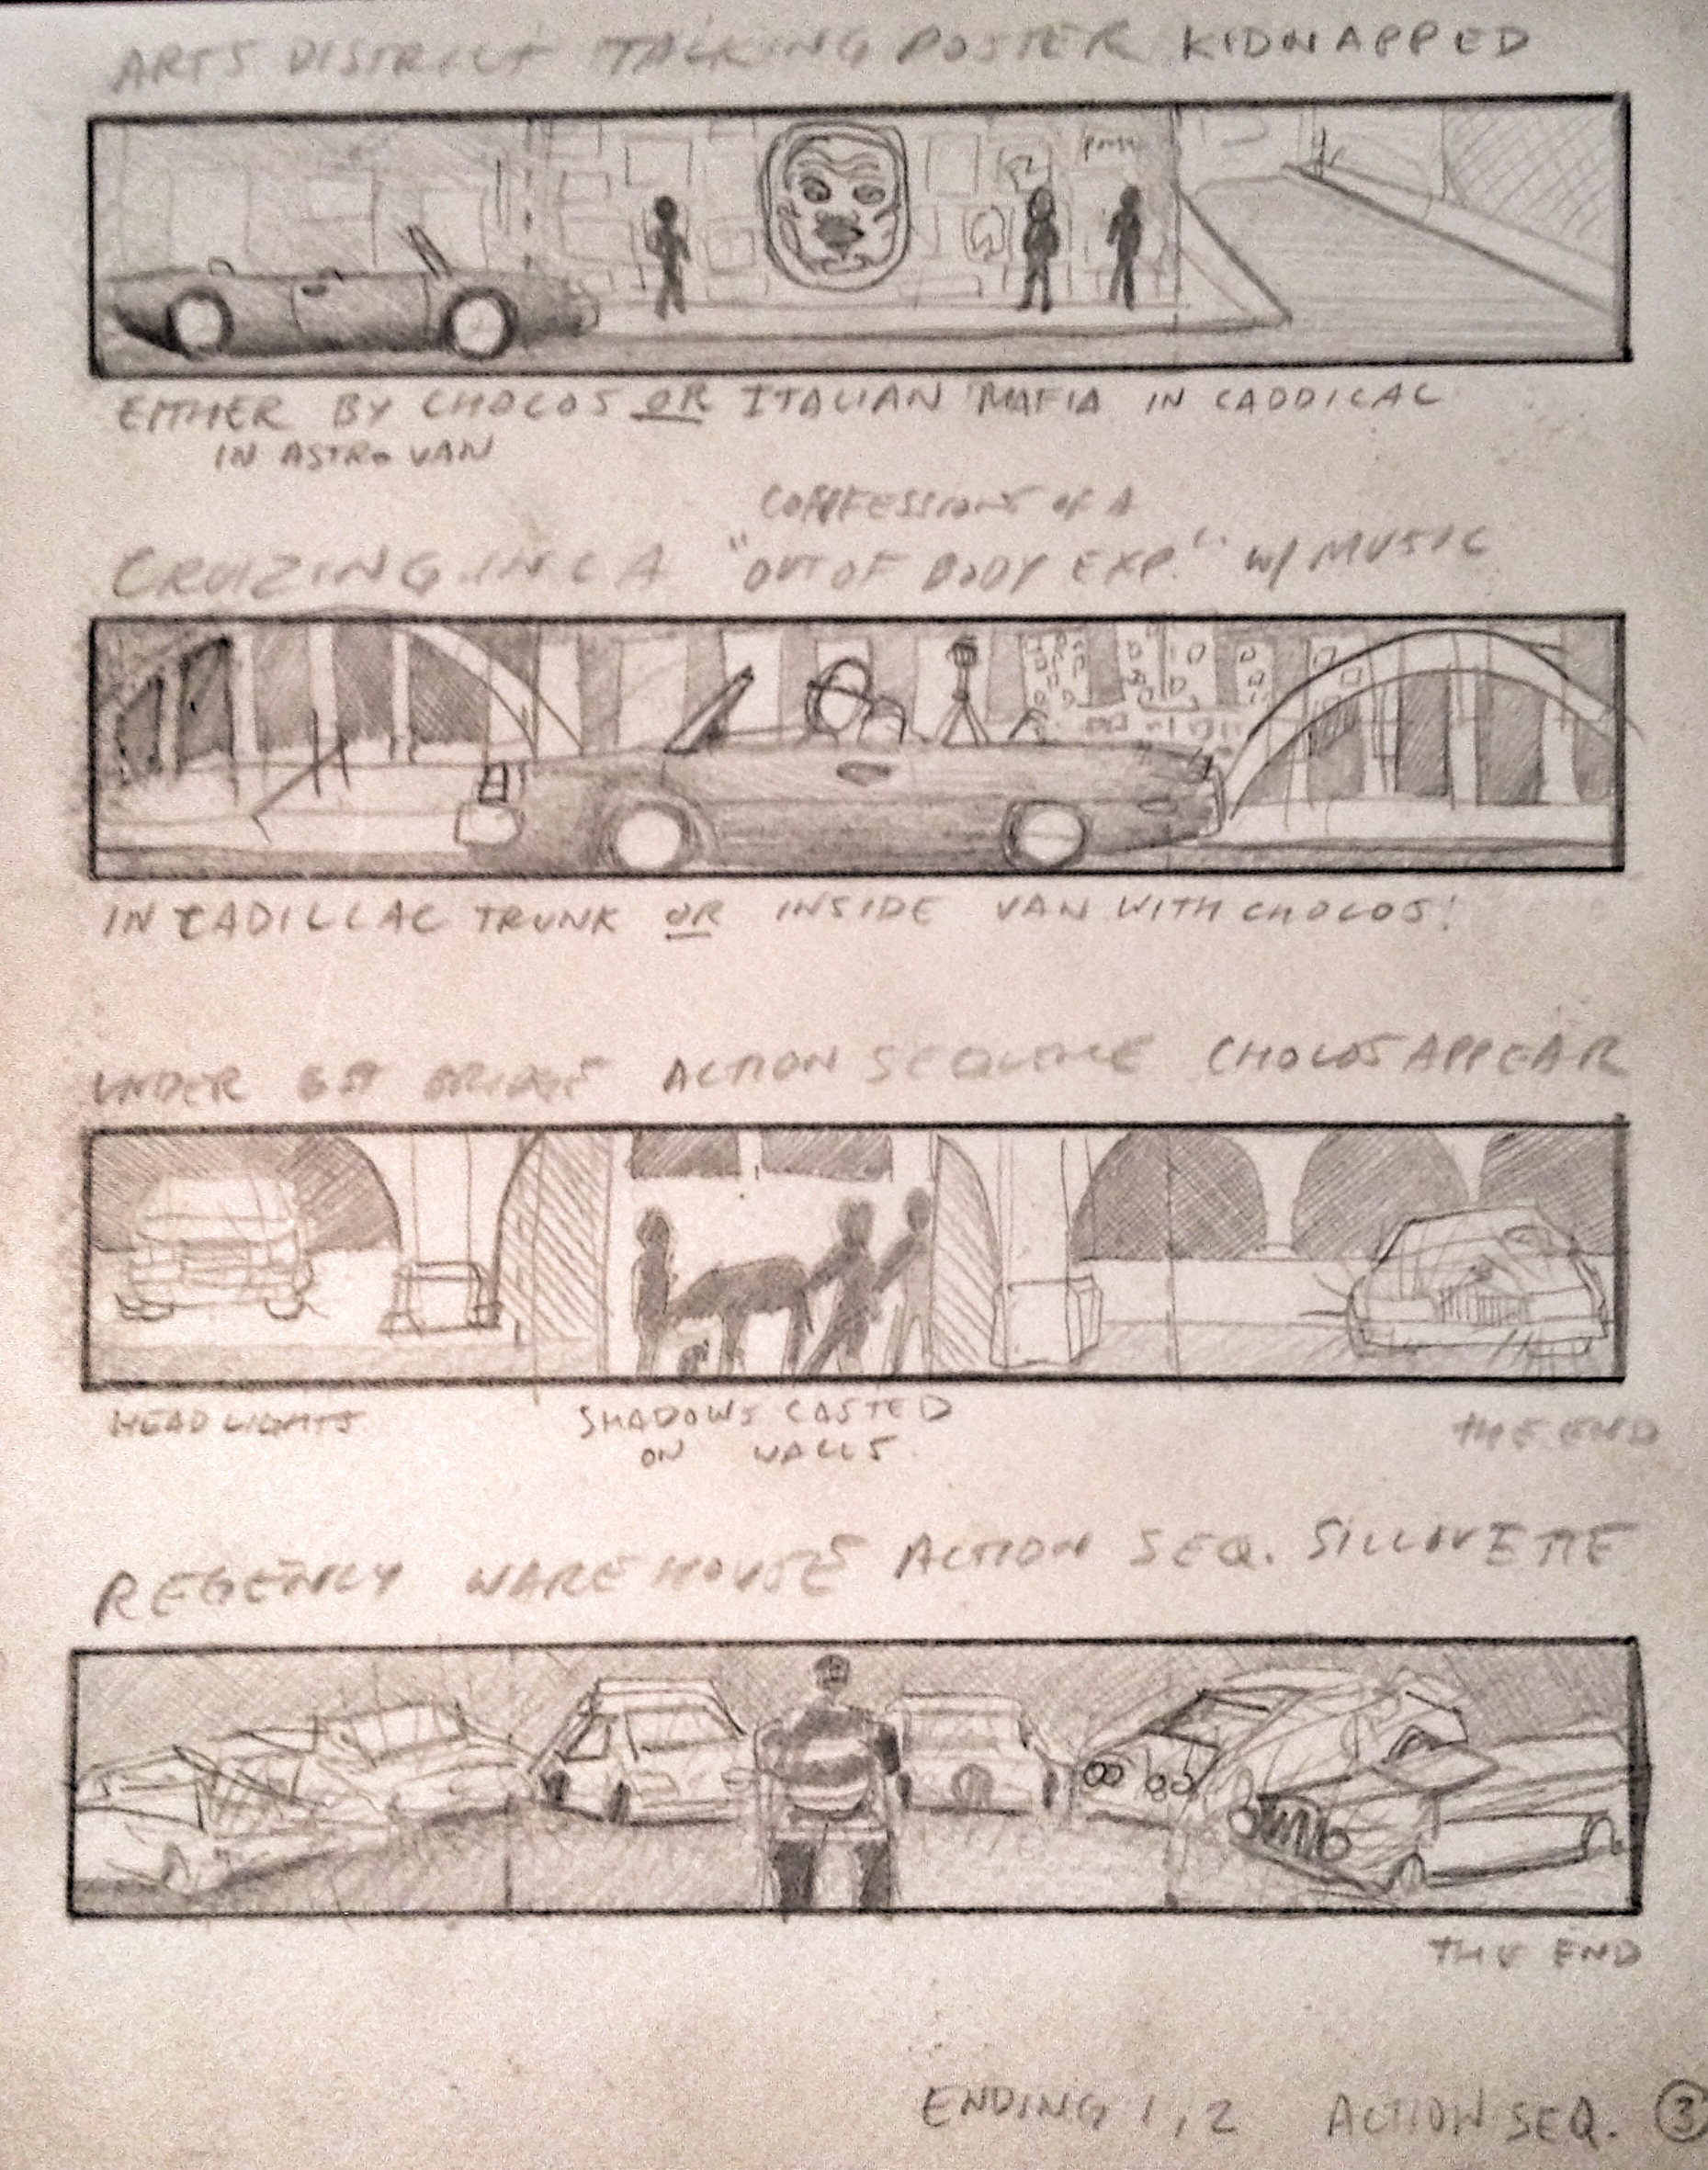 ARTS DISTRICT TALKING POSTER KIDNAPPED
EITHER BY CHOLOS OR ITALIAN MAFIA IN CADDILAC
IN ASTRO VAN
CONFESSIONS OF A
CRUIZING IN LA "OUT OF BODY EXP." W/ MUSIC
IN CADILLAC TRUNK OR INSIDE VAN WITH CHOLOS!
UNDER 6st BRIDGE ACTION SEQUENCE CHOLOS APPEAR
HEADLIGHTS
SHADOWS CASTED
ON WALLS.
THE END
REGENCY WAREHOUSE ACTION SEQ. SILLOUETTE
THE END
ENDING 1, 2 ACTION SEQ. 3